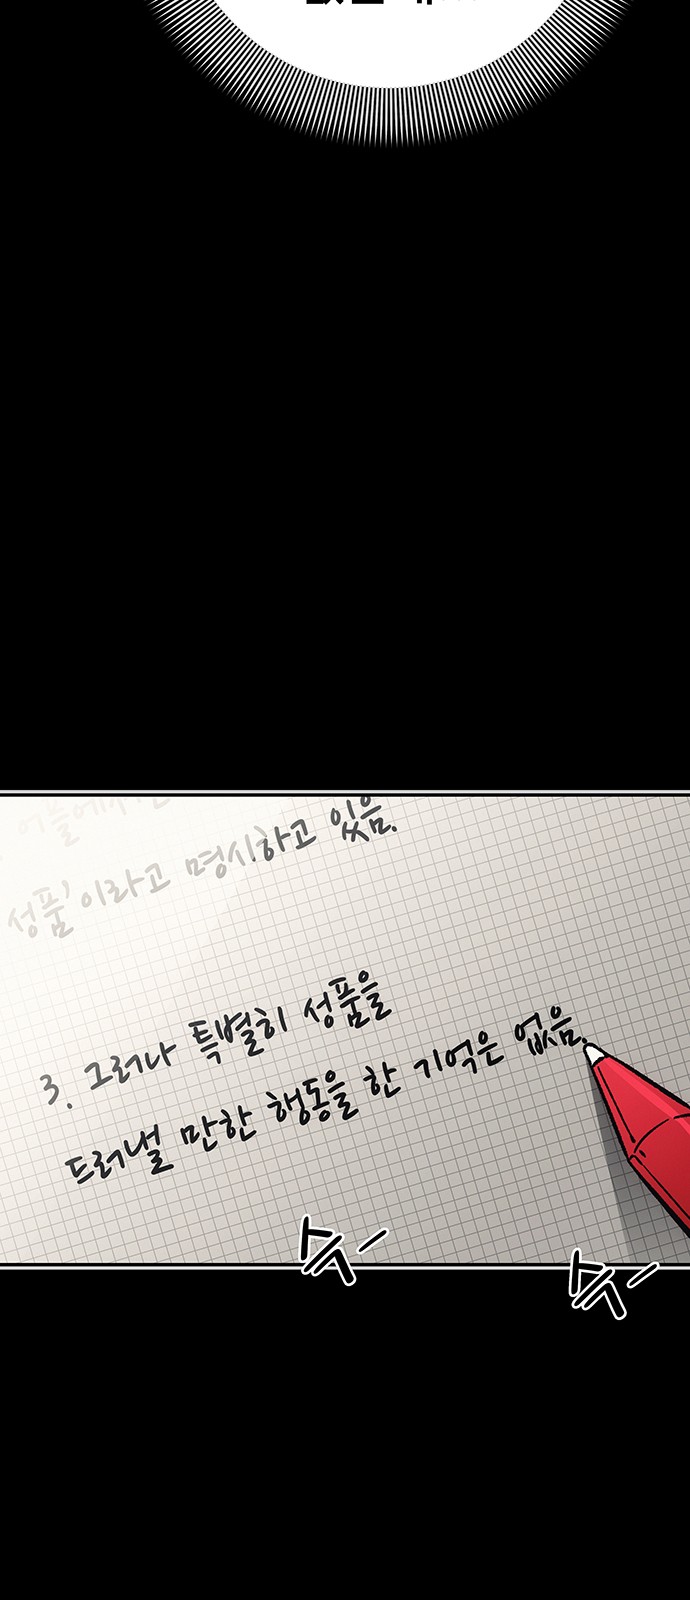 있음.
성품'이라고 명시하고
3. 그러나 특별히 성품을
드러낼 만한 행동을 한 기억은 없음.
슥-
슥-